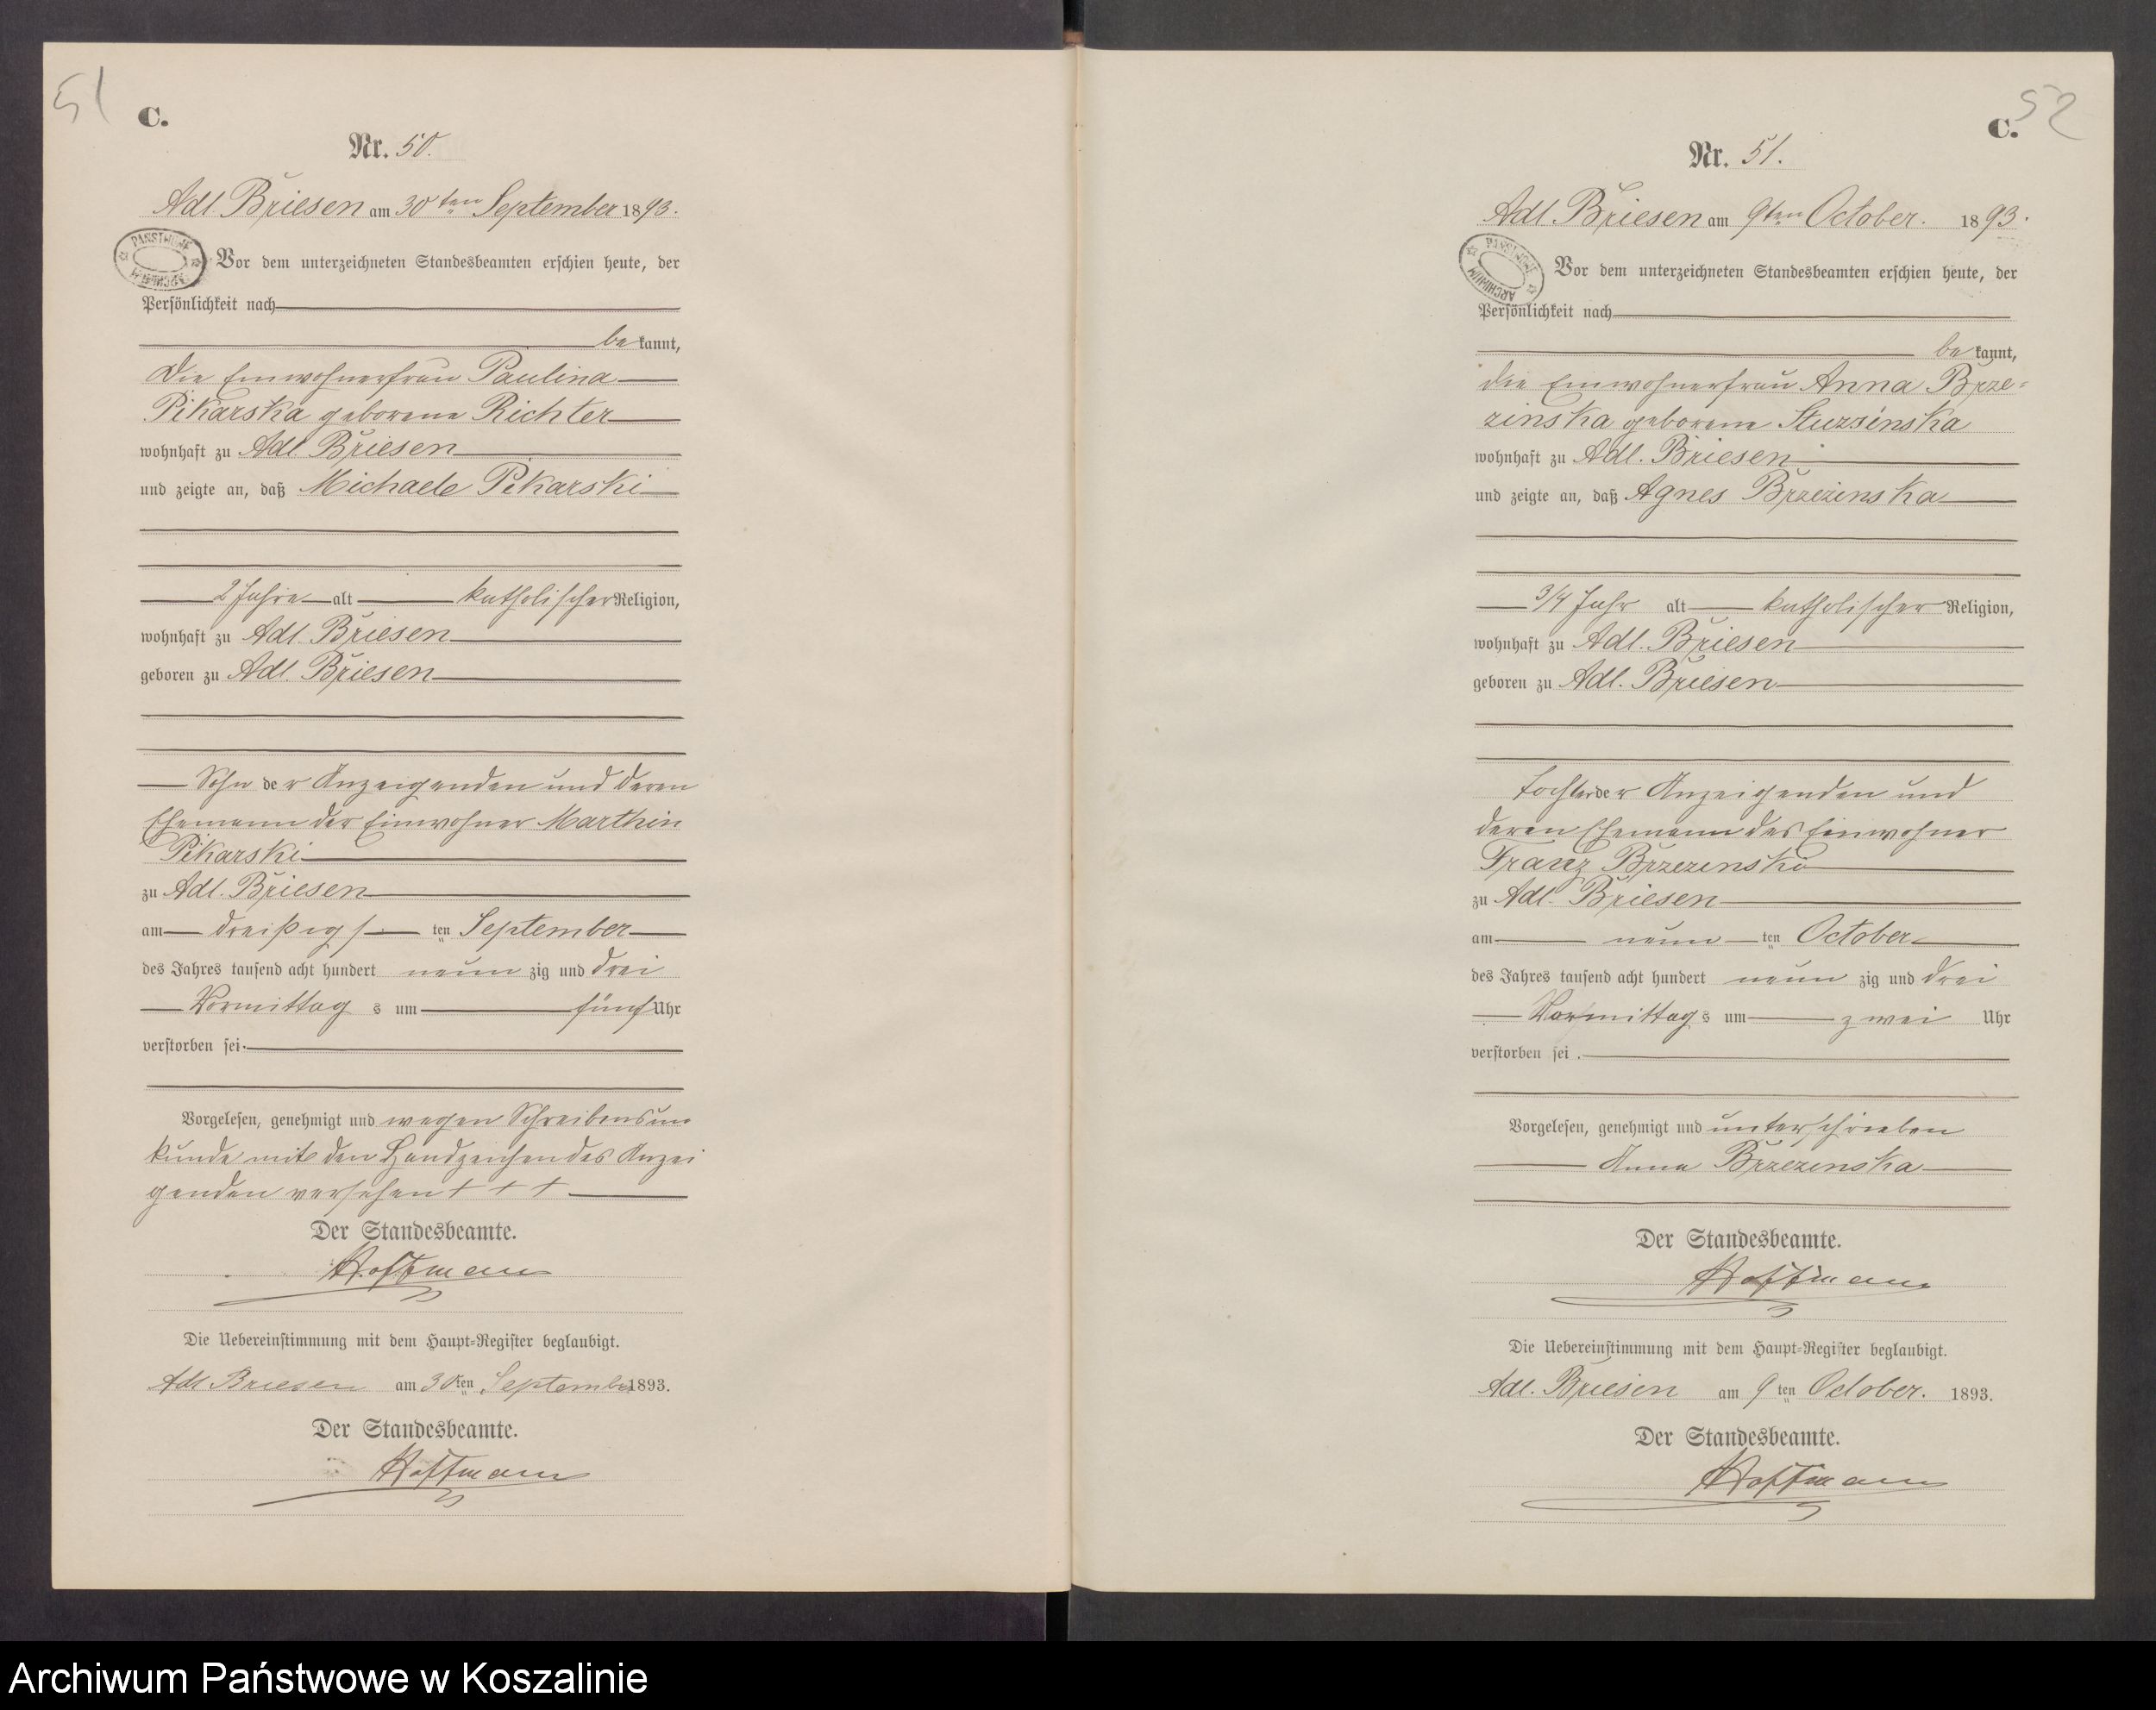 51
C.
Nr. 50.
Adl. Briesen am 30ten September 1893.
PAŃSTWOWE ARCHIWUM
Vor dem unterzeichneten Standesbeamten erschien heute, der
Persönlichkeit nach
bekannt,
die Einwohnerfrau Paulina
Pikarska geborene Richter
wohnhaft zu Adl. Briesen
und zeigte an, daß Michaele Pikarski
2 Jahre alt katholischer Religion,
wohnhaft zu Adl. Briesen
geboren zu Adl. Briesen
Sohn der Anzeigenden und deren
Ehemann der Einwohner Marthin
Pikarski
zu Adl. Briesen
am dreißigsten September
des Jahres tausend acht hundert neunzig und drei
Vormittags um fünf Uhr
verstorben sei.
Vorgelesen, genehmigt und wegen Schreibensun
kunde mit den Handzeichen des Anzei
genden versehen + + +
Der Standesbeamte.
Hoffmann
Die Uebereinstimmung mit dem Haupt=Register beglaubigt.
Adl Briesen am 30ten September 1893.
Der Standesbeamte.
Hoffmann
52
C.
Nr. 51.
Adl. Briesen am 9ten October. 1893.
PAŃSTWOWE ARCHIWUM
Vor dem unterzeichneten Standesbeamten erschien heute, der
Persönlichkeit nach
bekannt,
die Einwohnerfrau Anna Brze=
zinska geborene
wohnhaft zu Adl. Briesen
und zeigte an, daß Agnes Brzezinska
3/4 Jahr alt katholischer Religion,
wohnhaft zu Adl. Briesen
geboren zu Adl. Briesen
Tochter der Anzeigenden und
deren Ehemann des Einwohner
Franz Brzezinski
zu Adl. Briesen
am neunten October
des Jahres tausend acht hundert neunzig und drei
Vormittags um zwei Uhr
verstorben sei.
Vorgelesen, genehmigt und unterschrieben
Anna Brzezinska
Der Standesbeamte.
Hoffmann
Die Uebereinstimmung mit dem Haupt=Register beglaubigt.
Adl. Briesen am 9ten October. 1893.
Der Standesbeamte.
Hoffmann
Archiwum Państwowe w Koszalinie